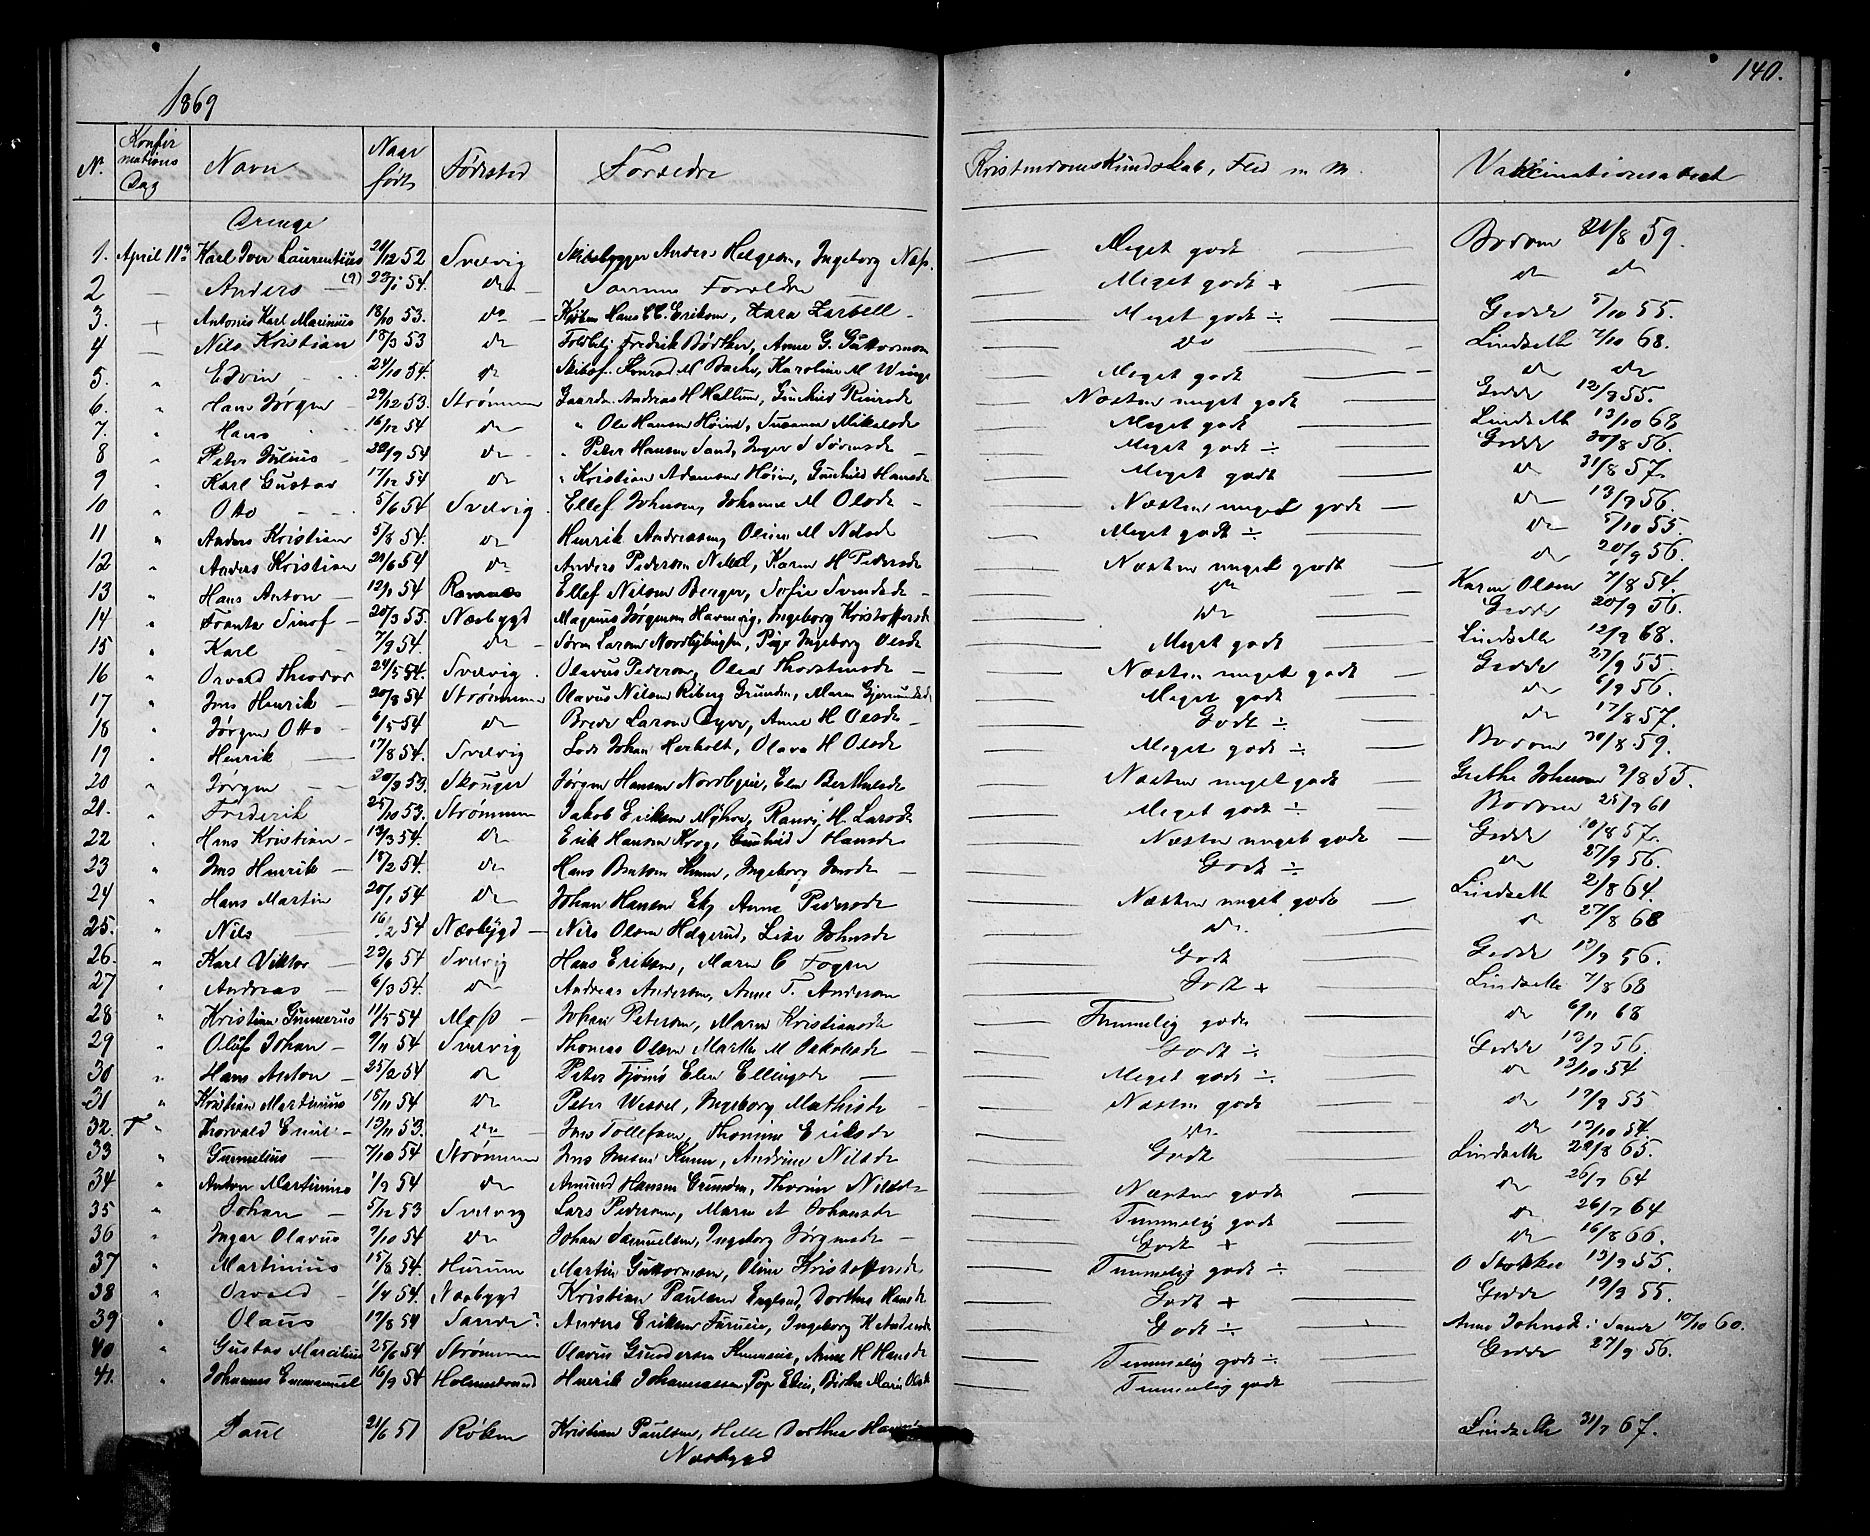 140.
1869
Nr. Konfirmations Dag Navn Naar født Fødested Forældre Kristendomskundskab, Flid m. M. Vaccinationsattest
Drenge
1. April 11te Karl Iver Laurentius 21/12 52 Svelvig Skibsbygger Anders Helgesen, Ingeborg Næss Meget godt Bodom 21/8 59.
2 — Anders — 23/1 54. do — Samme Forældre Meget godt + do do
3. Antonis Karl Marinius 18/10 53. do Hans C. Eriksen, Zara Zarbell Meget godt ÷ Gedde 5/10 55.
4 — Nils Kristian 18/3 53 do Fredrik Bødtker, Anne G. Guttormsen do Lindseth 7/10 68.
5. " Edvin 24/10 54. do Konrad M Bache, Karoline M Winge Meget godt do do
6. " Hans Jørgen — 29/12 53. Strømmen Gaardm. Andreas H Hallum, Gunhild Næsten meget godt Gedde 12/9 55.
7. " Hans 16/12 54 do " Ole Hansen Høiend, Susanne Mikelsdt Meget godt Lindseth 13/10 68
8 " Peter Julius — 28/9 54 do — " Peter Hansen Sand, Inger S Sørensdt Meget godt ÷ Gedde 30/8 56.
9 " Karl Gustav 17/12 54 do " Kristian Adamsen Høien, Gunhild Hansdt Meget godt do 31/8 57.
10 " Otto 5/6 54 Svelvig Ellef Johnsen, Johanne M Olsdt Næsten meget godt do 13/9 56.
11 " Anders Kristian 5/8 54. do Henrik Andreassen, Oline M Nilsdt Meget godt ÷ do 5/10 55
12 " Anders Kristian 21/6 54 do Anders Pedersen, Karen H Pedersdt Næsten meget godt do 20/9 56.
13 " Hans Anton — 12/1 54 Ramnæs Ellef Nilsen Berger, Sofie Svendsdt do Karen Olsen 7/8 54.
14 " Frantz Sinof — 20/3 55. Næsbygd Magnus Jørgensen Havnevig, Ingeborg Kristoffersdt do Gedde 20/9 56.
15 " Karl 7/9 54. do — Søren Larsen Nordbybugten, Pige Ingeborg Olsdt Meget godt Lindseth 12/9 68.
16 " Osvald Theodor 24/5 54. Svelvig Olavus Pedersen, Olea Thorstensdt Næsten meget godt Gedde 27/9 55.
17 " Jens Henrik — 20/8 54 Strømmen Olavus Nilsen Riberg Grunden, Maren Gjermundsdt Meget godt do 6/9 56.
18 " Jørgen Otto — 6/5 54 do Brede Larsen Dyve, Anne H Olsdt Godt ÷ do 17/8 57.
19 " Henrik — 17/8 54. Svelvig Lods Johan Herholt, Olava H Olsdt Meget godt ÷ Bodom 30/8 59.
20 " Jørgen — 20/9 53. Skouger Jørgen Hansen Nordbyeie, Elen Berthelsdt Næsten meget godt Grethe Johnsen 9/8 55.
21. " Frederik 25/10 53. Strømmen Jakob Eriksen Myhre, Ranvei H. Larsdt Meget godt ÷ Bodom 25/9 61
22 " Hans Kristian — 13/3 54. do Erik Hansen Krog, Gunhild S Hansdt Næsten meget godt Gedde 10/8 57.
23 " Jens Henrik — 18/2 54. do Hans Bentsen, Ingeborg Jensdt Godt ÷ do 27/9 56.
24 " Hans Martin 20/1 54 do Johan Hansen Ek, Anne Pedersdt Næsten meget godt Lindseth 2/8 64.
25. " Nils 16/2 54 Næsbygd — Nils Olsen Helgerud, Lise Johnsdt do. do 27/8 68
26. " Karl Viktor — 23/6 54 Svelvig Hans Eriksen, Maren C Fogen Godt Gedde 13/9 56.
27 " Andreas — 6/3 54. do Andreas Andersen, Anne T. Andersen Godt + Lindseth 7/8 68
28 " Kristian Gunnerus 11/5 54 Moss — Johan Petersen, Maren Kristiansdt Temmelig godt do 6/11 68
29 " Oluf Johan — 9/11 54 Svelvig Thomas Olsen Marthe M Jakobsdt Godt ÷ Gedde 13/7 56.
30 " Hans Anton — 25/2 54 do Peter Tjømø Elen Ellingsdt — Meget godt ÷ do 13/10 54
31 " Kristian Martinius 15/11 54 do Peter Wessel, Ingeborg Mathisdt — Næsten godt do 17/9 55
32. T " Thorvald Emil — 13/11 53. do Jens Tollefsen, Thomine Eriksdt do do 13/10 54.
33 " Gunnelius — 7/10 54 Strømmen Jens Jensen, Andrine Nilsdt Godt Lindseth 28/8 65.
34 " Anton Martinius 1/3 54 do Amund Hansen Grunden, Thorine Nilsdt Næsten godt do 26/7 64
35 " Johan — 5/12 53 Svelvig Lars Pedersen, Maren A Johansdt Temmelig godt do 26/7 64
36 " Ingar Olavus 7/10 54 do Johan Samuelsen, Ingeborg Jørgensdt — Godt + do 16/8 66.
37 " Martinius 15/8 54. Hurum Martin Guttormsen, Oline Kristoffersdt Temmelig godt ÷ O Stokke 13/9 55.
38 " Osvald — 1/4 54. Næsbygd Kristian Paulsen Englend, Dorthea Hansdt Godt + Gedde 19/9 55.
39 " Olaus 17/8 54 Sande Anders Eriksen, Ingeborg K Andersdt Godt ÷ Anne Johnsdt i Sande 10/10 60.
40 " Gustav Marcilius 25/6 54 Strømmen Olavus Gundersen, Anne H Hansdt Temmelig godt ÷ Gedde 27/9 56.
41. " Johannes Emmanuel 16/9 54 Holmestrand Henrik Johannessen, Pige Elen Birthe Marie Olsdt Temmelig godt
Paul 21/6 51 Røken Kristian Paulsen, Helle Dorthea Hansdt Lindseth 31/7 67.
Næsbygd